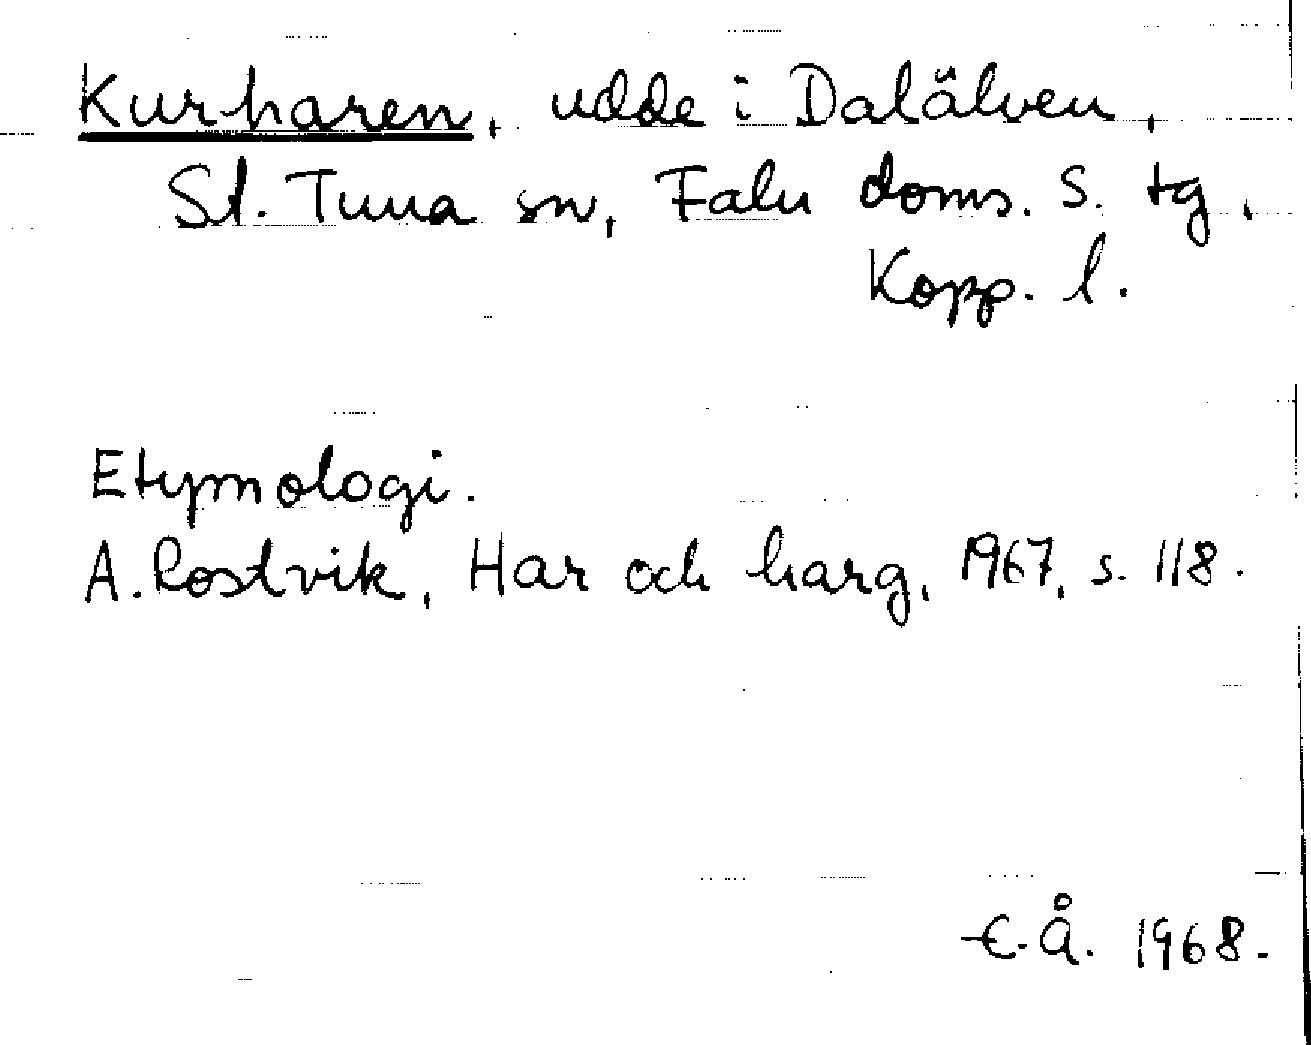 Kurharen, udde i Dalälven,
St. Tuna sn, Falu doms. S. tg,
Kopp. l.
Etymologi.
A. Rostvik, Har och harg, 1967, s. 118.
E.Å. 1968.